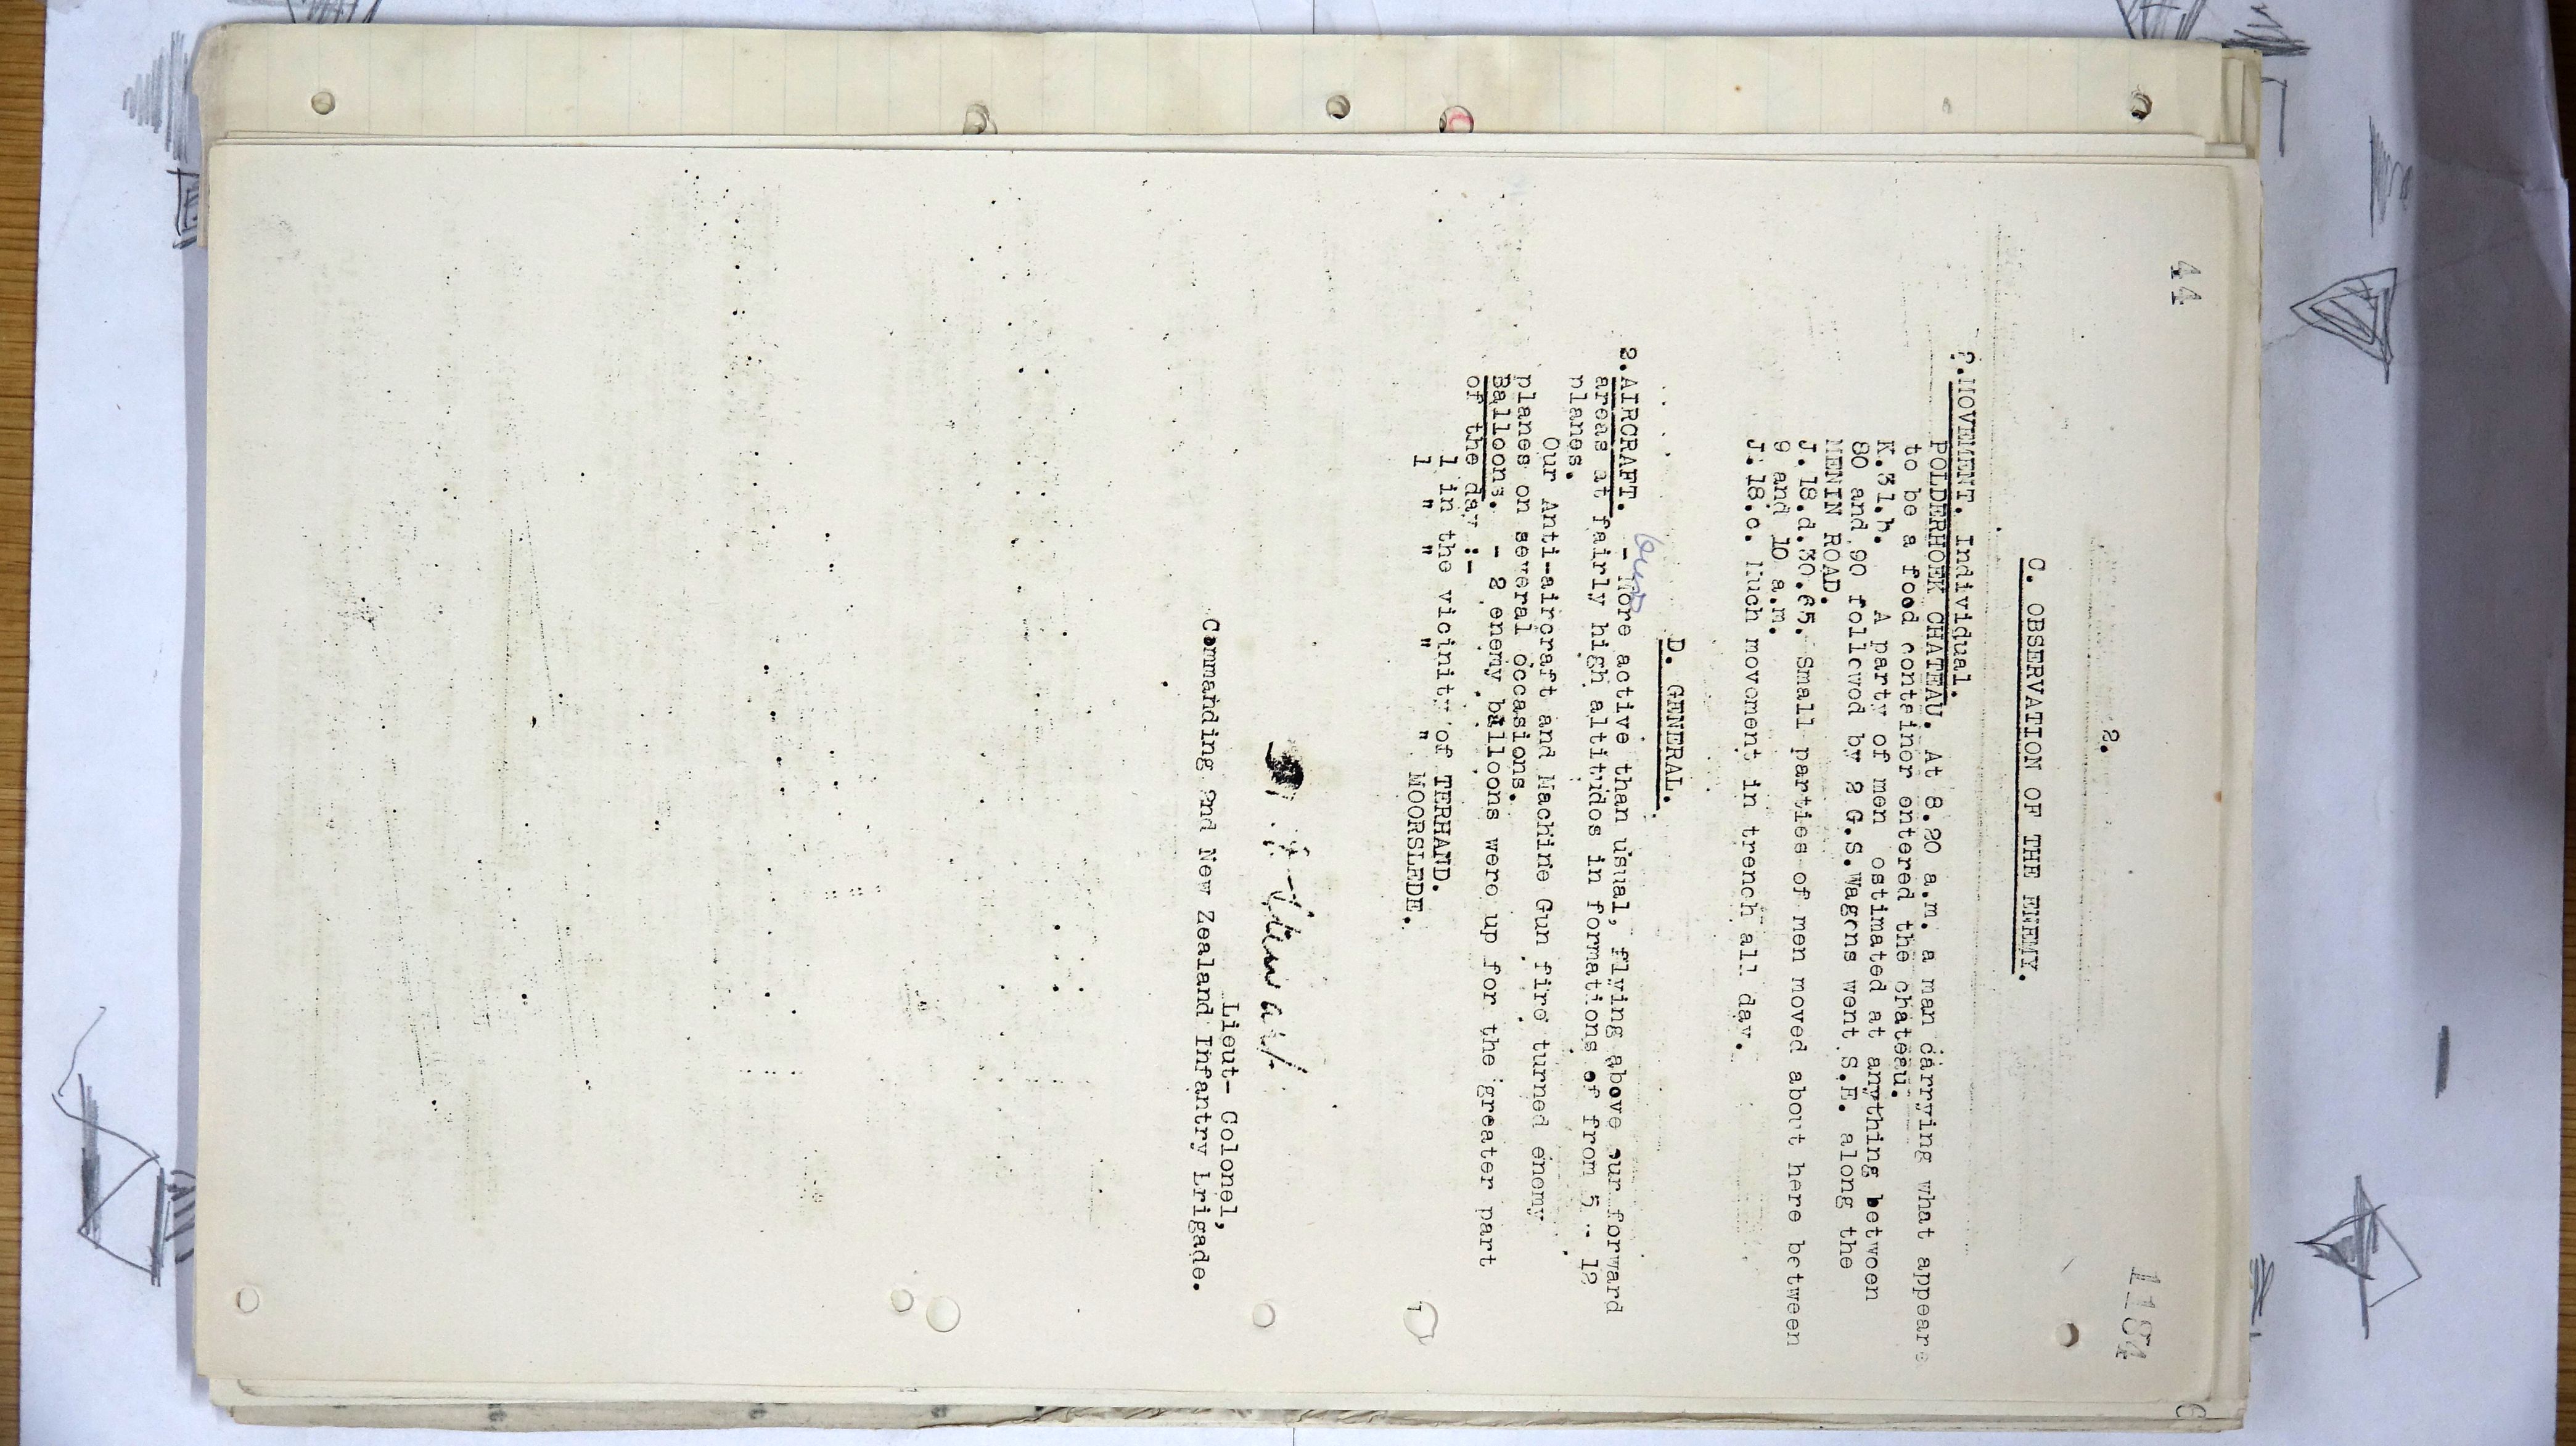 44
1184
2.
C. OBSERVATION OF THE ENEMY.
?.MOVEMENT. Individual.
POLDERHOEK CHATEAU. At 8.20 a.m. a man carrying what appears
to be a food container entered the chateau.
K.31.b. A party of men estimated at anything between
80 and 90 followed by 2 G.S.Wagons went S.E. along the
MENIN ROAD.
J.18.d.30.65. Small parties of men moved about here between
9 and 10 a.m.
J.18.c. Much movement in trench all day.
D. GENERAL.
2.AIRCRAFT. - More active than usual, flying above our forward
areas at fairly high altitudes in formations of from 5 - 12
planes.
Our Anti-aircraft and Machine Gun fire turned enemy
planes on several occasions.
Balloons. - 2 enemy balloons were up for the greater part
of the day :-
1 in the vicinity of TERHAND.
1 " " " " MOORSLEDE.
Stewart
Lieut- Colonel,
Commanding 2nd New Zealand Infantry Brigade.